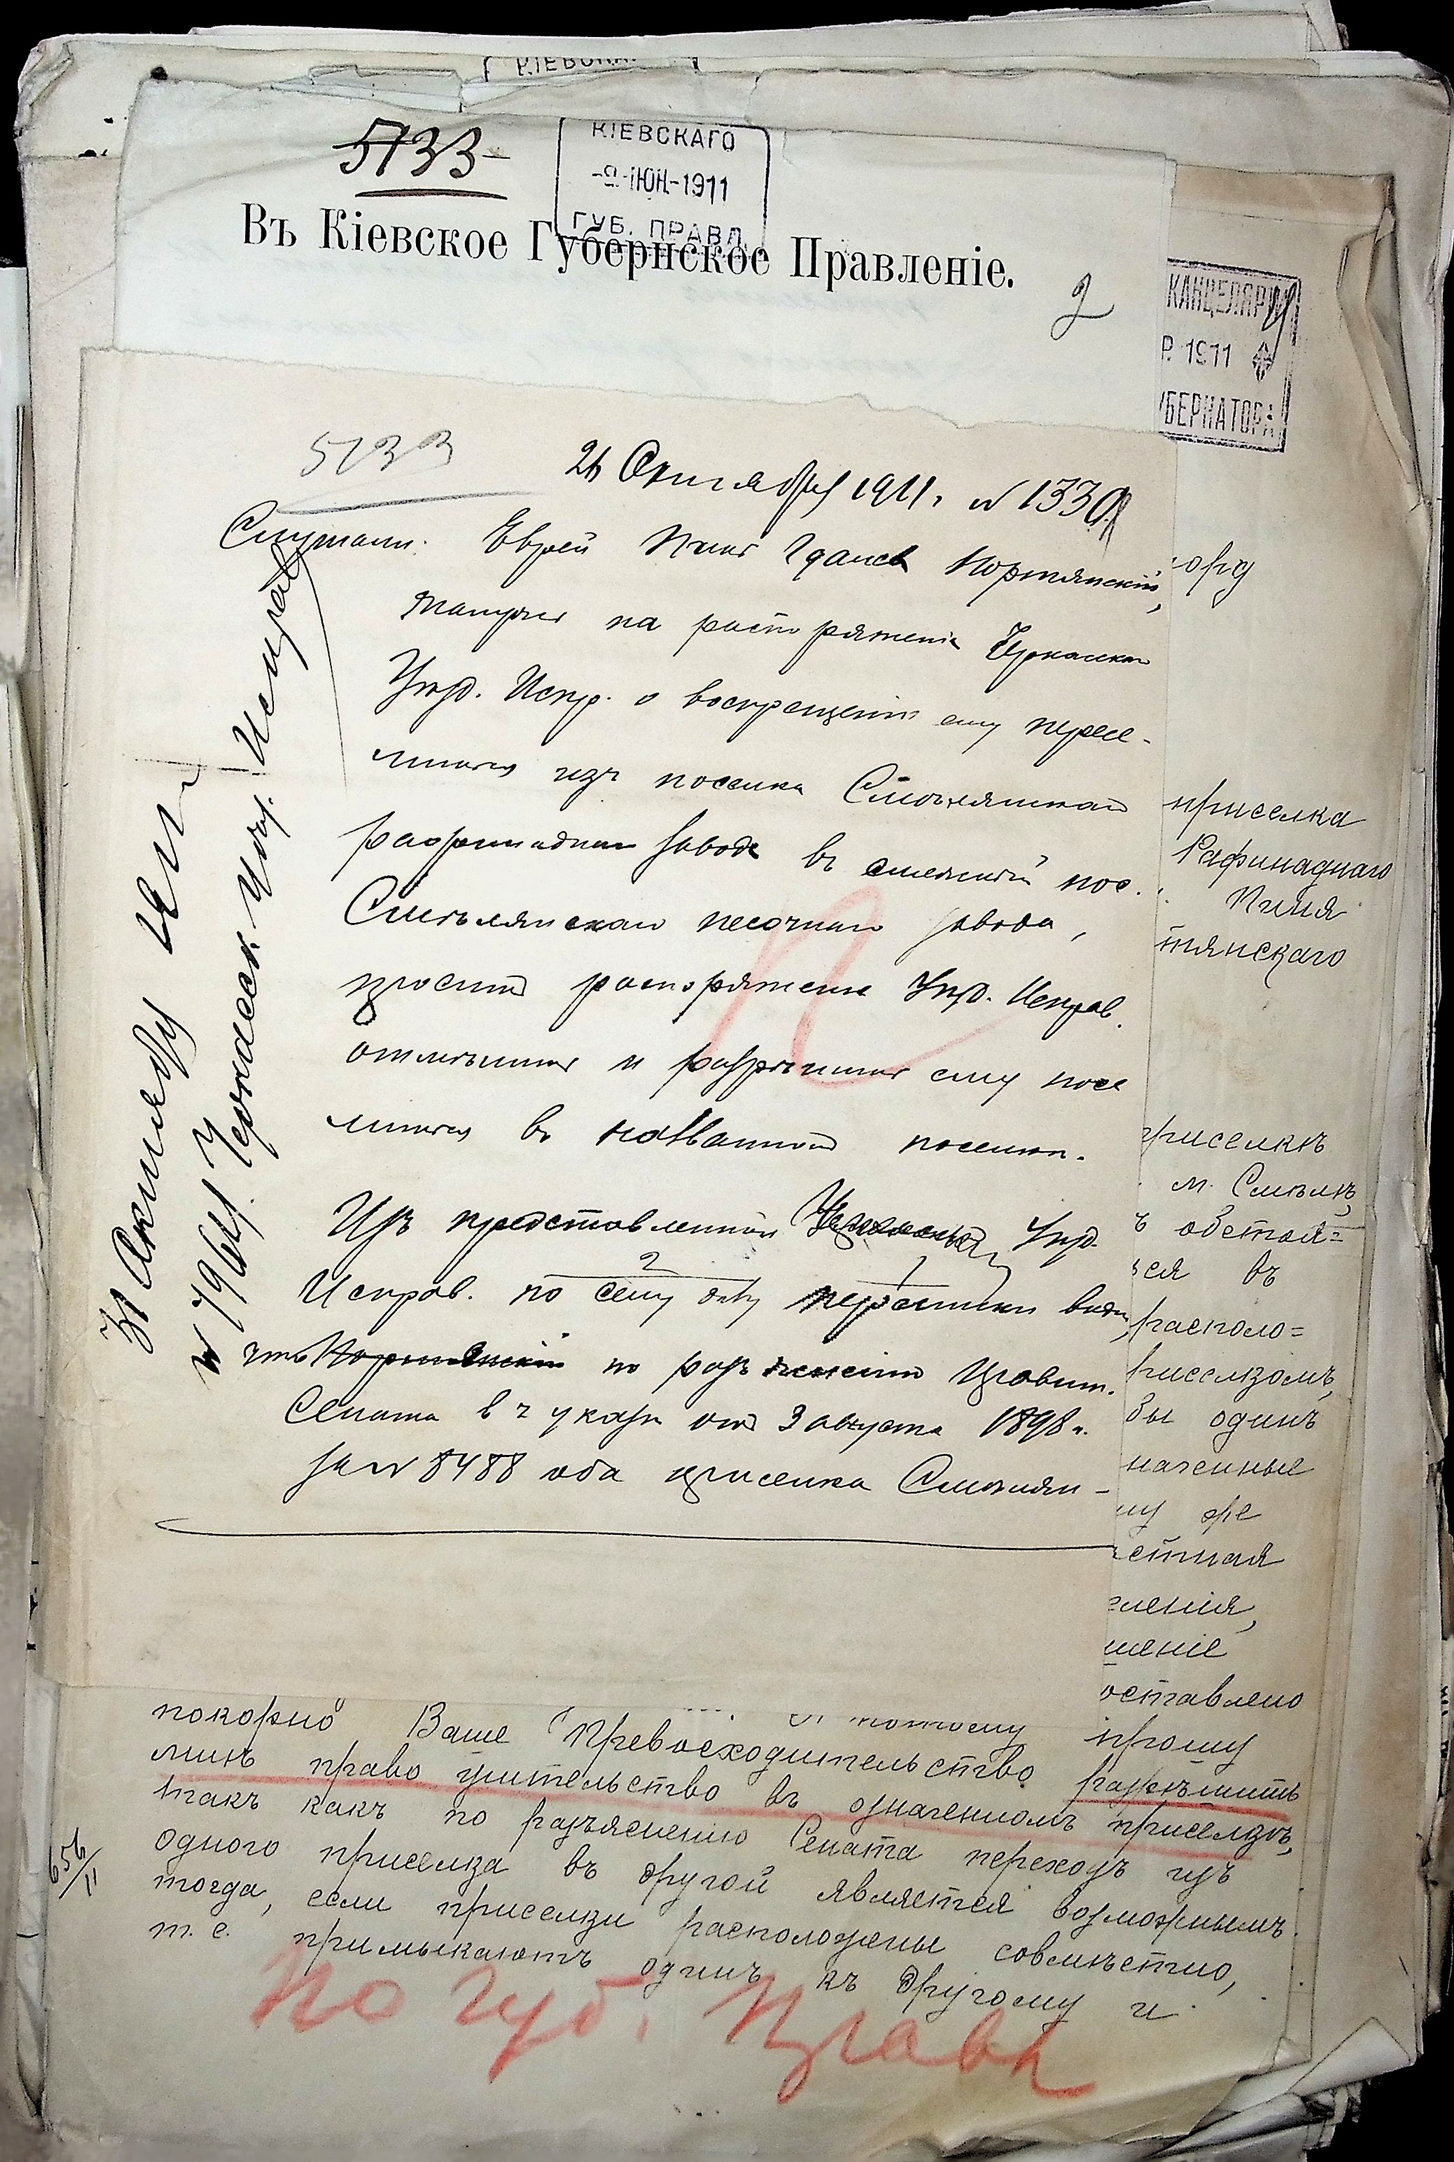 КІЕВСКА
5133
КІЕВСКАГО
-9-ІЮН.-1911
ГУБ. ПРАВЛ.
Въ Кіевское Губернское Правленіе.
2
КАНЦЕЛЯРІ
Р. 1911
УБЕРНАТОРА
5133
1911 г. № 1330
Слушали: Еврей Пиня Портянскій,
жалуясь на распоряженіе Черкасскаго
Уѣзд. Испр. о воспрещеніи ему пересе-
литься изъ поселка Смѣлянскаго
рафинаднаго завода въ смежный пос.
Смѣлянскаго песочнаго завода,
проситъ распоряженіе Уѣзд. Исправ.
отмѣнить и разрѣшить ему посе
литься въ названномъ поселкѣ.
Изъ представленной Уѣзд.
2 1
Исправ. по сему дѣлу переписки видно,
что Портянскій по разъясненію Правит.
Сената въ указѣ отъ 3 августа 1898 г.
за № 8488 оба приселка Смѣлян-
№ 796 Черкасск. Уѣзд. Исправ
приселка
Рафинаднаго
Пиня
тянскаго
приселкѣ
м. Смѣлѣ,
обстоя=
ся въ
располо=
приселкомъ,
бы одинъ
наченные
му же
стная
ленія,
шеніе
оставлено
прошу
покорно Ваше Превосходительство разрѣшить
мнѣ право жительство въ означенномъ приселкѣ,
такъ какъ по разъясненію Сената переходъ изъ
одного приселка въ другой является возможнымъ
тогда, если приселки расположены совмѣстно,
т. е. примыкаютъ одинъ къ другому и
656/11
по Губ. Правл